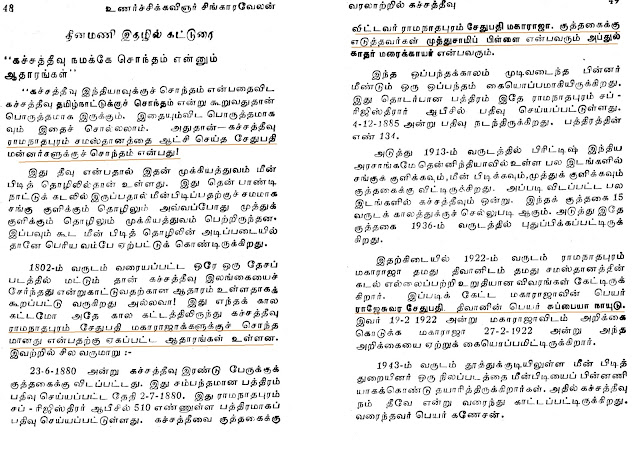 48 உணர்ச்சிக்கவிஞர் சிங்காரவேலன்
தினமணி இதழில் கட்டுரை
"கச்சத்தீவு நமக்கே சொந்தம் என்னும்
ஆதாரங்கள்"
"கச்சத்தீவு இந்தியாவுக்குச் சொந்தம் என்பதைவிட
கச்சத்தீவு தமிழ்நாட்டுக்குச் சொந்தம் என்று கூறுவதுதான்
பொருத்தமாக இருக்கும். இதையும்விட பொருத்தமாக
வும் இதைச் சொல்லலாம். அதுதான்—கச்சத்தீவு
ராமநாதபுரம் சமஸ்தானத்தை ஆட்சி செய்த சேதுபதி
மன்னர்களுக்குச் சொந்தம் என்பது!
இது தீவு என்பதால் இதன் முக்கியத்துவம் மீன்
பிடித் தொழிலில்தான் உள்ளது. இது தென் பாண்டி
நாட்டுக் கடலில் இருப்பதால் மீன்பிடிப்பதற்குச் சமமாக
சங்கு குளிக்கும் தொழிலும் அவ்வப்போது முத்துக்
குளிக்கும் தொழிலும் முக்கியத்துவம் பெற்றிருந்தன.
இப்பவும் கூட மீன் பிடித் தொழிலின் அடிப்படையில்
தானே பெரிய வம்பே ஏற்பட்டுக் கொண்டிருக்கிறது.
1802-ம் வருடம் வரையப்பட்ட ஒரே ஒரு தேசப்
படத்தில் மட்டும் தான் கச்சத்தீவு இலங்கையைச்
சேர்ந்தது என்றுகாட்டுவதற்கான ஆதாரம் உள்ளதாகக்
கூறப்பட்டு வருகிறது அல்லவா! இது எந்தக் கால
கட்டமோ அதே கால கட்டத்திலிருந்து கச்சத்தீவு
ராமநாதபுரம் சேதுபதி மகாராஜாக்களுக்குச் சொந்த
மானது என்பதற்கு ஏகப்பட்ட ஆதாரங்கள் உள்ளன.
இவற்றில் சில வருமாறு :-
23-6-1880 அன்று கச்சத்தீவு இரண்டு பேருக்குக்
குத்தகைக்கு விடப்பட்டது. இது சம்பந்தமான பத்திரம்
பதிவு செய்யப்பட்ட தேதி 2-7-1880. இது ராமநாதபுரம்
சப் - ரிஜிஸ்திரர் ஆபிசில் 510 எண்ணுள்ள பத்திரமாகப்
பதிவு செய்யப்பட்டுள்ளது. கச்சத்தீவை குத்தகைக்கு
வரலாற்றில் கச்சத்தீவு 49
விட்டவர் ராமநாதபுரம் சேதுபதி மகாராஜா. குத்தகைக்கு
எடுத்தவர்கள் முத்துசாமிப் பிள்ளை என்பவரும் அப்துல்
காதர் மரைக்காயர் என்பவரும்.
இந்த ஒப்பந்தக்காலம் முடிவடைந்த பின்னர்
மீண்டும் ஒரு ஒப்பந்தம் கையொப்பமாகியிருக்கிறது.
இது தொடர்பான பத்திரம் இதே ராமநாதபுரம் சப் -
ரிஜிஸ்திரர் ஆபிசில் பதிவு செய்யப்பட்டுள்ளது.
4-12-1885 அன்று பதிவு நடந்திருக்கிறது. பத்திரத்தின்
எண் 134.
அடுத்து 1913-ம் வருடத்தில் பிரிட்டிஷ் இந்திய
அரசாங்கமே தென்னிந்தியாவில் உள்ள பல இடங்களில்
சங்குக் குளிக்கவும், மீன் பிடிக்கவும், முத்துக் குளிக்கவும்
குத்தகைக்கு விட்டிருக்கிறது. அப்படி விடப்பட்ட பல
இடங்களில் கச்சத்தீவும் ஒன்று. இந்தக் குத்தகை 15
வருடக் காலத்துக்குச் செல்லுபடி ஆகும். அடுத்து இதே
குத்தகை 1936-ம் வருடத்தில் புதுப்பிக்கப்பட்டிருக்
கிறது.
இதற்கிடையில் 1922-ம் வருடம் ராமநாதபுரம்
மகாராஜா தமது திவானிடம் தமது சமஸ்தானத்தின்
கடல் எல்லைபற்றி உறுதியான விவரங்கள் கேட்டிருக்
கிறார். இப்படிக் கேட்ட மகாராஜாவின் பெயர்
ராஜேசுவர சேதுபதி. திவானின் பெயர் சுப்பையா நாயுடு.
இவர் 17-2 1922 அன்று மகாராஜாவிடம் அறிக்கை
கொடுக்க மகாராஜா 27-2-1922 அன்று அந்த
அறிக்கையை ஏற்றுக் கையொப்பமிட்டிருக்கிறார்.
1943-ம் வருடம் தூத்துக்குடியிலுள்ள மீன் பிடித்
துறையினர் ஒரு நிலப்படத்தை மீன்பிடியைப் பின்னணி
யாகக்கொண்டு தயாரித்திருக்கிறார்கள். அதில் கச்சத்தீவு
நம் தீவே என்று வரைந்து காட்டப்பட்டிருக்கிறது.
வரைந்தவர் பெயர் கணேசன்.